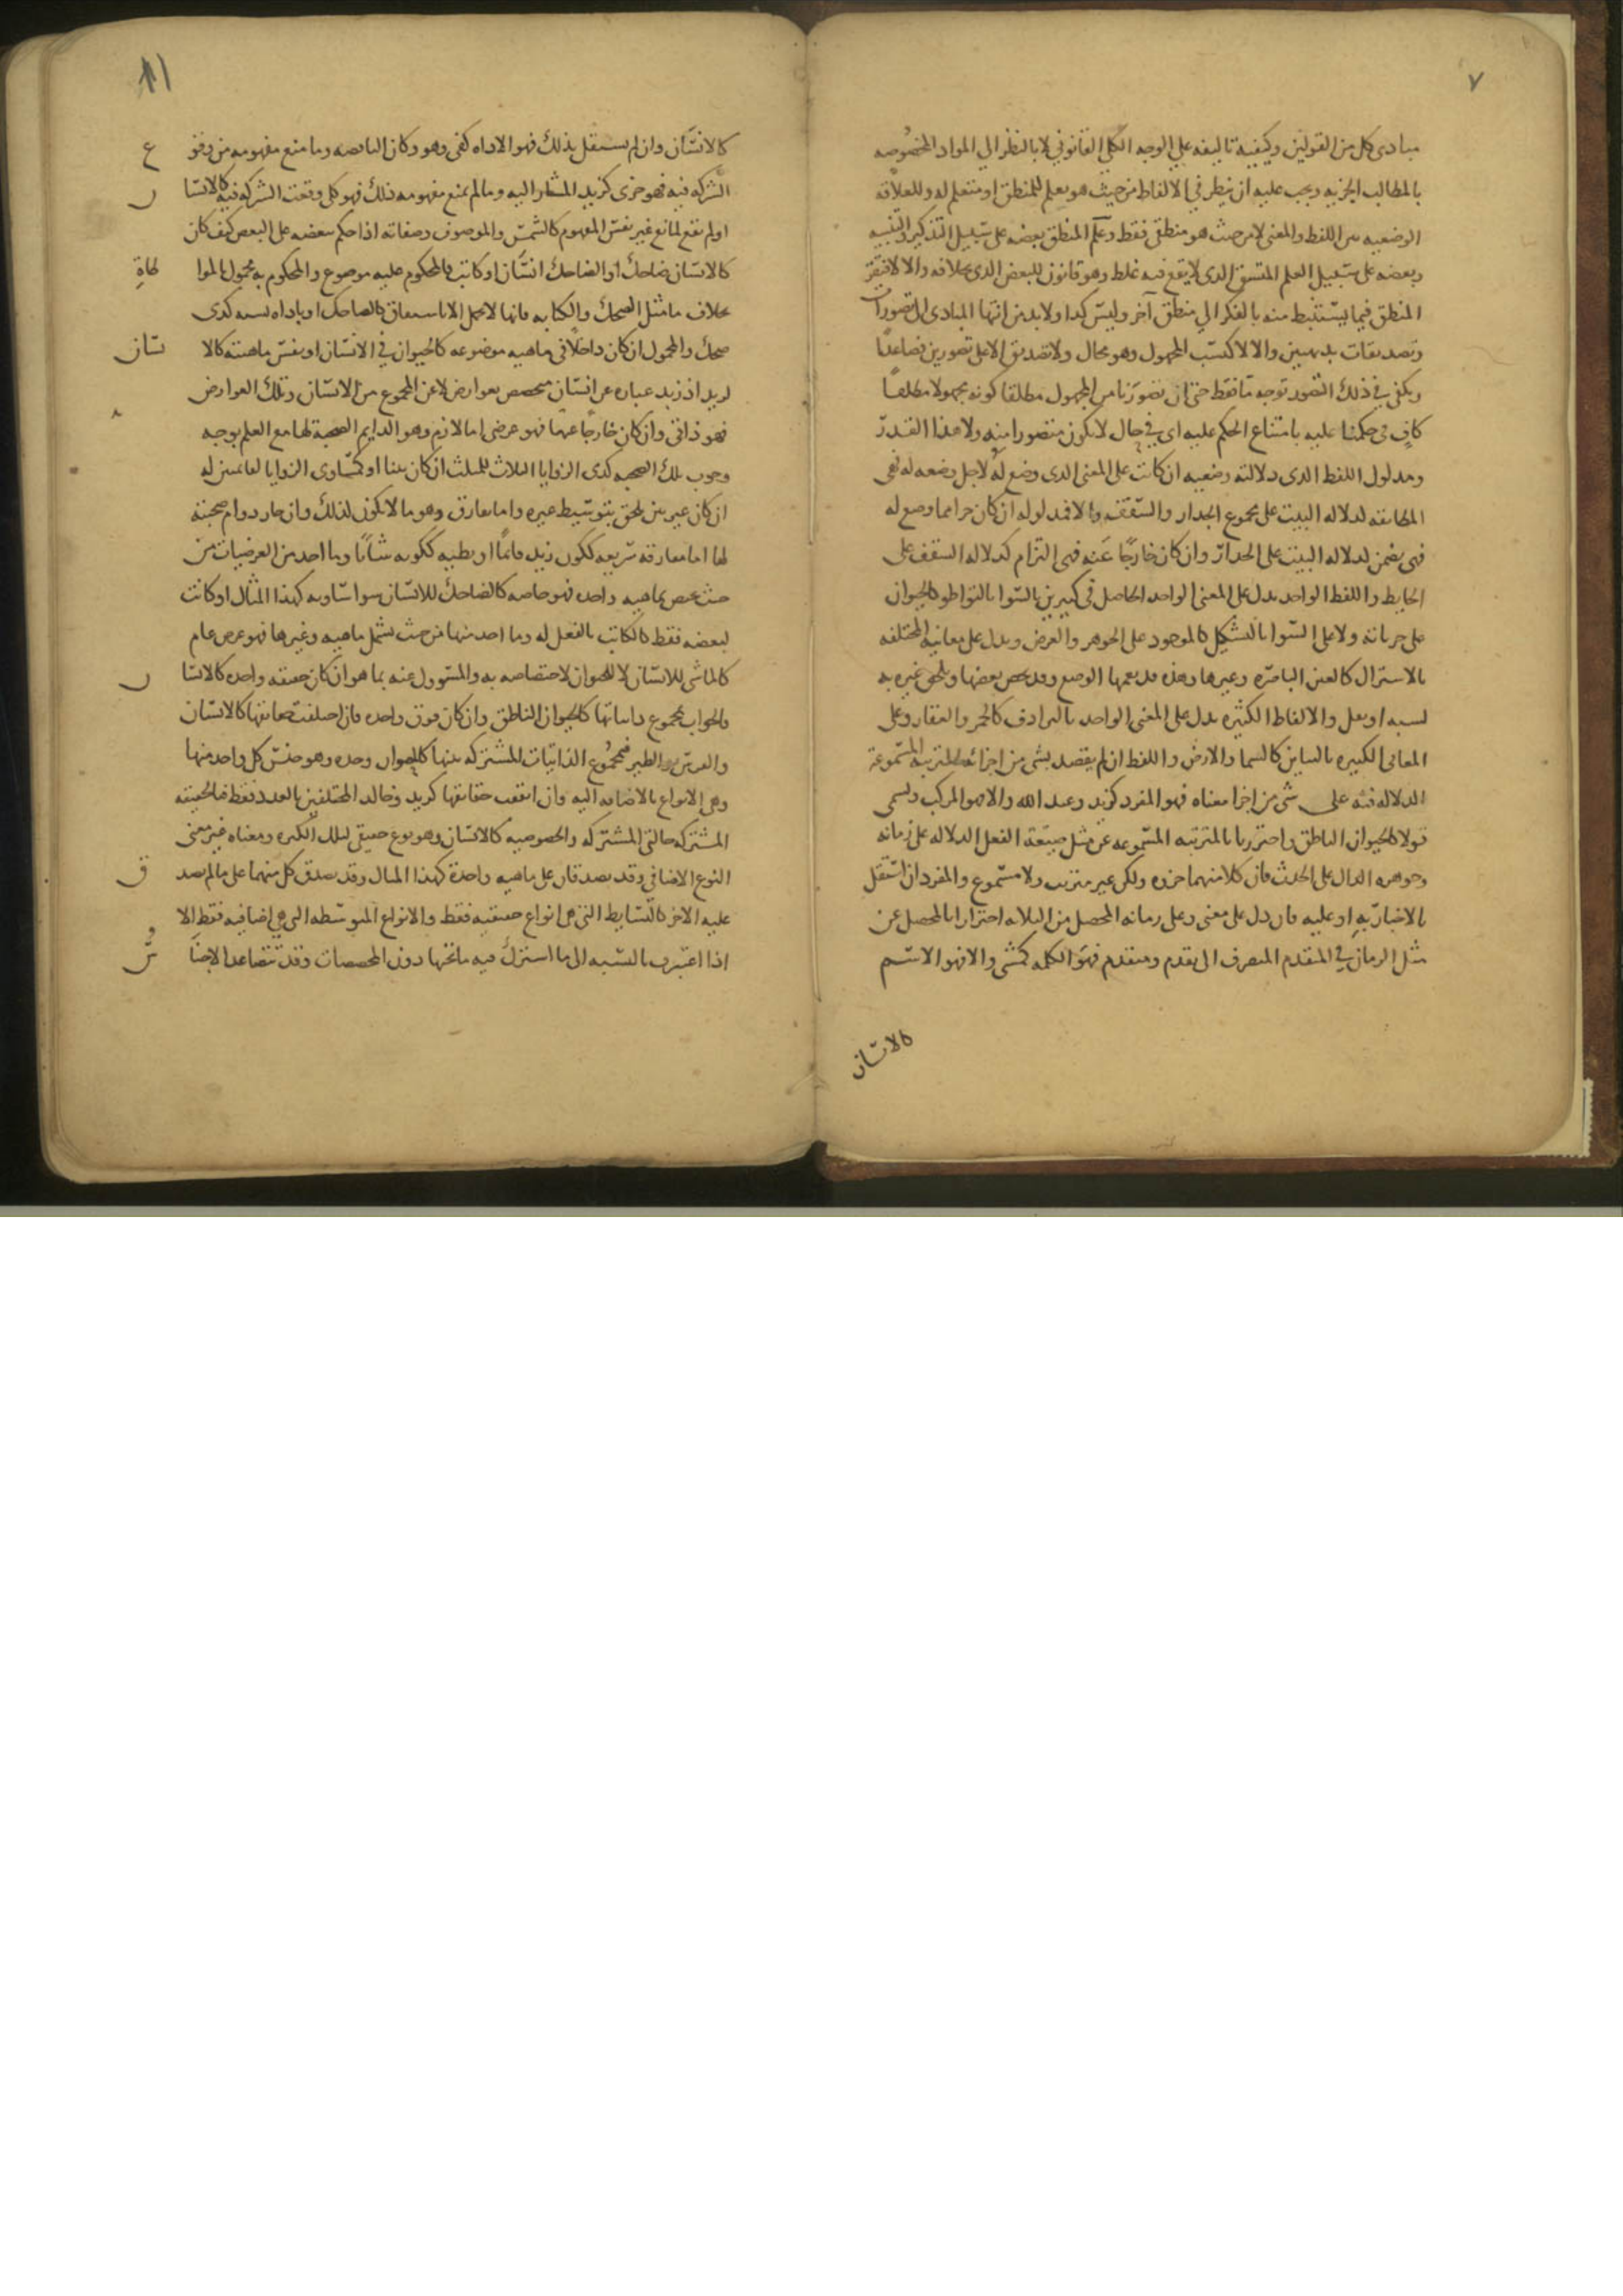 ٧
مبادى كل من القولين وكيفية تاليفه على الوجه الكلى القانونى لا بالنظر الى المواد المخصوصه
بالمطالب الجزيه ويجب عليه ان ينظر فى الالفاظ من حيث هو معلم للمنطق او متعلم له وللعلاقه
الوضعيه بين اللفظ والمعنى لا من حيث هو منطقى فقط وتعلم المنطق بعضه على سبيل التذكير والتنبيه
وبعضه على سبيل العلم المتسق الذى لا يقع فيه غلط وهو قانون للبعض الذى بخلافه والا لافتقر
المنطق فيما يستنبط منه بالفكر الى منطق آخر وليس كذا ولا بد من انتها المبادى الى تصورات
وتصديقات بديهيين والا لاكتسب المجهول وهو محال ولا تصديق الا على تصورين فصاعدا
ويكفى فى ذلك التصور توجه ما فقط حتى ان تصورنا من المجهول مطلقا كونه مجهولا مطلقا
كافٍ فى حكمنا عليه بامتناع الحكم عليه اى فى حال لا يكون متصورا منه ولا هذا القدر
ومدلول اللفظ الذى دلالته وضعيه ان كانت على المعنى الذى وضع له لاجل وضعه له فهى
المطابقه لدلاله البيت على مجموع الجدار والسقف والا فمدلوله ان كان جزا مما وضع له
فهى تضمن لدلاله البيت على الجدار وان كان خارجًا عنه فهى التزام كدلاله السقف على
الحايط واللفظ الواحد يدل على المعنى الواحد الحاصل فى كثيرين بالسوا بالتواطو كالحيوان
على جزياته ولا على السوا بالتشكيك كالموجود على الجوهر والعرض ويدل على معانيه المختلفه
بالاشتراك كالعين الباصره وغيرها وهذه قد يعمها الوضع وقد يخص بعضها ويلحق غيره به
لشبه او نقل والالفاظ الكثيره يدل على المعنى الواحد بالترادف كالخمر والعقار وعلى
المعانى الكثيره بالتباين كالسما والارض واللفظ ان لم يقصد بشى من اجزائه المترتبه المسموعة
الدلاله فيه على شى من اجزا معناه فهو المفرد كزيد وعبد الله والا فهو المركب ويسمى
قولا كالحيوان الناطق واحترزنا بالمترتبه المسموعه عن مثل صيغة الفعل الدلاله على زمانه
وجوهره الدال على الحدث فان كلا منهما جزوه ولكن غير مترتب ولا مسموع والمفرد ان استقل
بالاخبار به او عليه فان دل على معنى وعلى زمانه المحصل من الثلاثه احترازا بالمحصل عن
مثل الزمان فى المتقدم المنصرف الى تقدم ومتقدم فهو الكلمه كمشى والا فهو الاسم
كالانسان
١١
كالانسان وان لم يستقل بذلك فهو الاداه كفى وهو وكان الناقصه وما منع مفهومه من وقوع
الشركه فيه فهو جزى كزيد المشار اليه وما لم يمنع مفهومه ذلك فهو كلى وقعت الشركه فيه كالانسان
او لم تقع لمانع غير نفس المفهوم كالشمس والموصوف وصفاته اذا حكم ببعضه على البعض كيف كان
كالانسان ضاحك او الضاحك انسان او كاتب فالمحكوم عليه موضوع والمحكوم به محمول بالمواطاةِ
بخلاف ما مثل الضحك والكتابه فانها لا تحمل الا باشتقاق كالضاحك او باداه نسبه كذى
ضحك والمحمول ان كان داخلًا فى ماهيه موضوعه كالحيوان فى الانسان او نفس ماهيته كالانسان
لزيد اذ زيد عباره عن انسان متخصص بعوارض لا عن المجموع من الانسان وتلك العوارض
فهو ذاتى وان كان خارجًا عنها فهو عرضى اما لازم وهو الدايم الصحبة لها مع العلم بوجه
وجوب تلك الصحبه كذى الزوايا الثلاث للمثلث ان كان بينا او كتساوى الزوايا لقايمتين له
ان كان غير بين يلحق بتوسيط غيره واما مفارق وهو ما لا يكون لذلك وان جاز دوام صحبته
لها اما مفارقه سريعه ككون زيد قائمًا او بطيه ككونه شابًا وما احد من العرضيات من
حيث يخص بماهيه واحده فهو خاصه كالضاحك للانسان سوا ساوته كهذا المثال او كانت
لبعضه فقط كالكاتب بالفعل له وما احد منها من حيث يشمل ماهيه وغيرها فهو عرض عام
كالماشى للانسان لا للحيوان لاختصاصه به والمسؤول عنه بما هو ان كان حقيقه واحده كالانسان
فالجواب مجموع ذاتياتها كالحيوان الناطق وان كان فوق واحده فان اختلفت حقائقها كالانسان
والفرس والطير فمجموع الذاتيات المشتركه بينها كالحيوان وحده وهو جنس كل واحد منها
وهى الانواع بالاضافه اليه وان اتفقت حقائقها كزيد وخالد المختلفين بالعدد فقط فالحقيقه
المشتركه حالتى المشتركه والخصوصيه كالانسان وهو نوع حقيقى لتلك الكثيره ومعناه غير معنى
النوع الاضافى وقد يصدقان على ماهيه واحدة كهذا المثال وقد يصدق كل منهما على ما لم يصدق
عليه الاخر كالبسايط التى هى انواع حقيقيه فقط والانواع المتوسطه التى هى اضافيه فقط الا
اذا اعتبرت بالنسبه الى ما اشترك فيه ما تحتها دون المخصصات وقد تتصاعد الاجناس